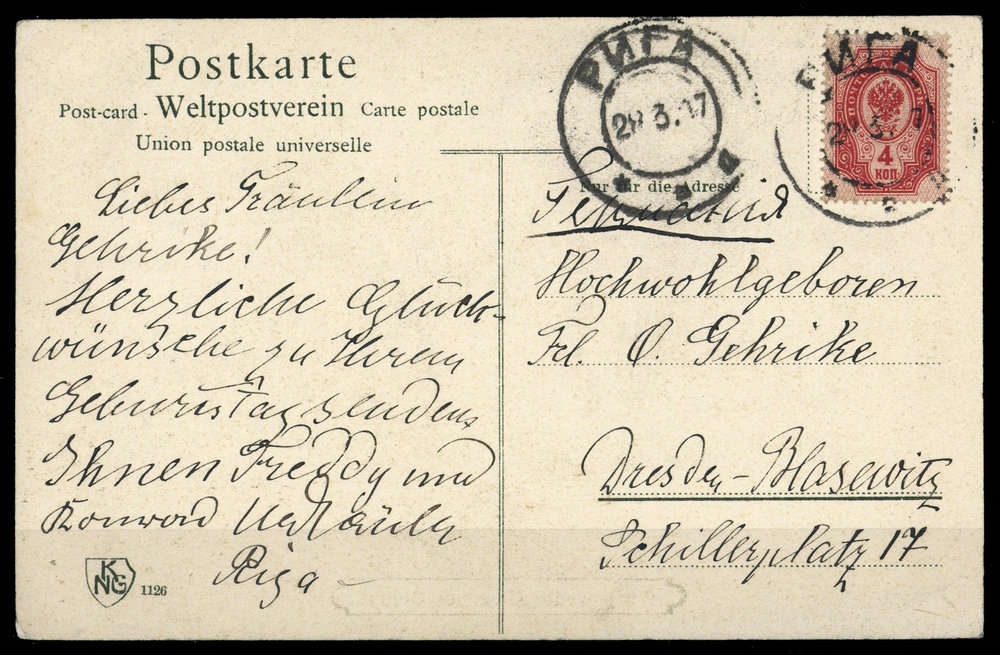 Postkarte
Post-card - Weltpostverein Carte postale
Union postale universelle
Liebes Fräulein
Gehrike!
Herzliche Glück-
wünsche zu Ihrem
Geburtstag senden
Ihnen Freddy und
Konrad
Riga
KNG 1126
РИГА
28 3.07
РИГА
28 3. 07
4
КОП.
Nur für die Adresse
Германия
Hochwohlgeboren
Frl. O. Gehrike
Dresden-Blasewitz
Schillerplatz 17